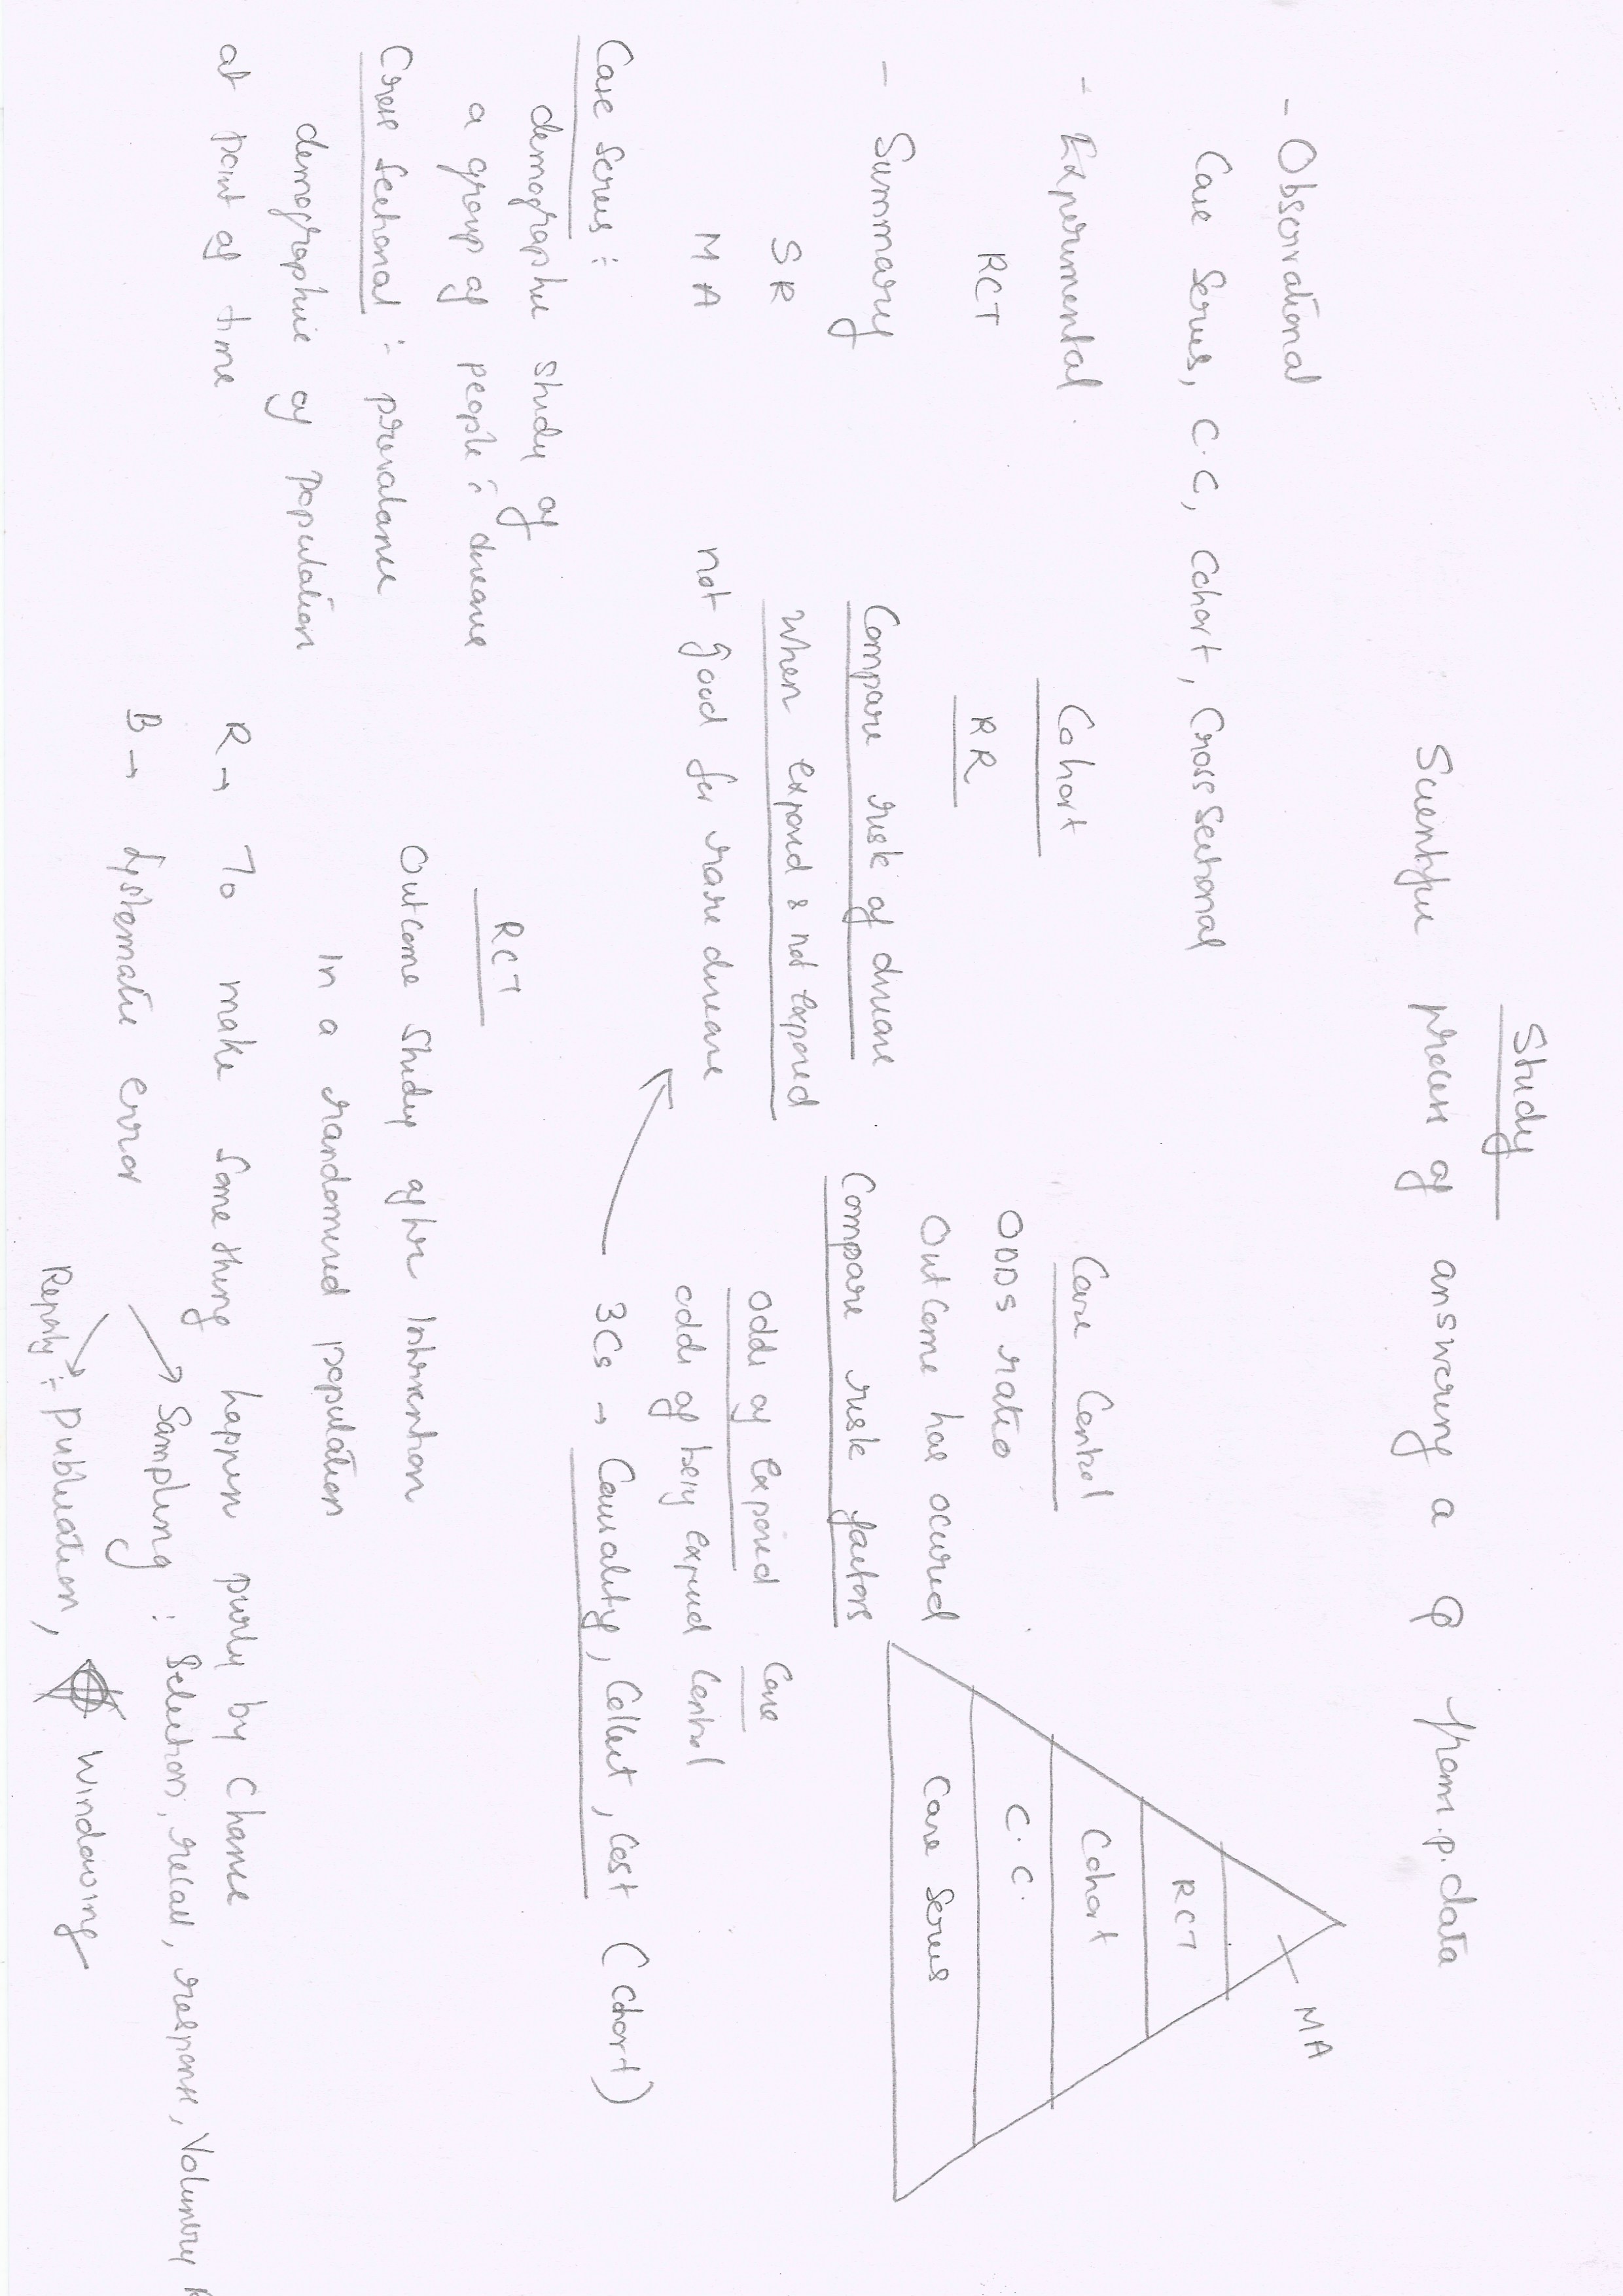 Study
Scientific process of answering a Q from p. data
- Observational
Case Series, C.C, Cohort, Cross Sectional
- Experimental
RCT
- Summary
SR
MA
Cohort
RR
Compare risk of disease
when exposed & not exposed
not good for rare disease
Case Control
ODDS ratio
Outcome has occured
Compare risk factors
odds of exposed Case
odds of being exposed Control
3Cs → Causality, Collect, Cost (Cohort)
MA
RCT
Cohort
C.C.
Case Series
Case series :
demographic study of
a group of people c disease
Cross Sectional :- prevalance
demographic of population
at point of time
RCT
Outcome study after intervention
in a randomised population
R → To make Something happen purely by Chance
B → Systematic error
Sampling : Selection, recall, response, Voluntary
Reporting :- Publication, Windowing